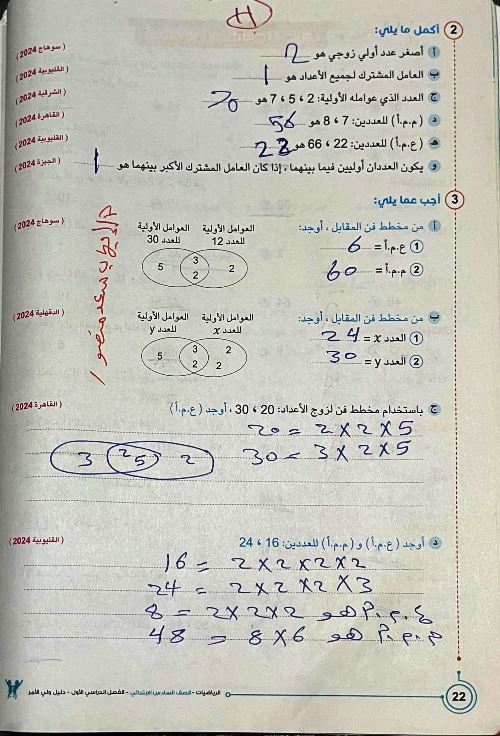 H
2 أكمل ما يلي:
أ أصغر عدد أولي زوجي هو 2 (سوهاج 2024)
ب العامل المشترك لجميع الأعداد هو 1 (القليوبية 2024)
ج العدد الذي عوامله الأولية: 2 ، 5 ، 7 هو 70 (الشرقية 2024)
د (م.م.أ) للعددين: 7 ، 8 هو 56 (القاهرة 2024)
هـ (ع.م.أ) للعددين: 22 ، 66 هو 22 (القليوبية 2024)
و يكون العددان أوليين فيما بينهما ، إذا كان العامل المشترك الأكبر بينهما هو 1 (الجيزة 2024)
3 أجب عما يلي:
أ من مخطط فن المقابل ، أوجد: (سوهاج 2024)
1 ع.م.أ = 6
2 م.م.أ = 60
العوامل الأولية للعدد 12
العوامل الأولية للعدد 30
5 3 2 2
ب من مخطط فن المقابل ، أوجد: (الدقهلية 2024)
1 العدد x = 24
2 العدد y = 30
العوامل الأولية للعدد x
العوامل الأولية للعدد y
5 3 2 2 2
ج باستخدام مخطط فن لزوج الأعداد: 20 ، 30 ، أوجد (ع.م.أ) (القاهرة 2024)
20 = 2 × 2 × 5
30 = 3 × 2 × 5
3 2 5 2
د أوجد (ع.م.أ) و (م.م.أ) للعددين: 16 ، 24 (القليوبية 2024)
16 = 2 × 2 × 2 × 2
24 = 2 × 2 × 2 × 3
ع.م.أ هو 2 × 2 × 2 = 8
م.م.أ هو 8 × 6 = 48
22 الرياضيات - الصف السادس الابتدائي - الفصل الدراسي الأول - دليل ولي الأمر